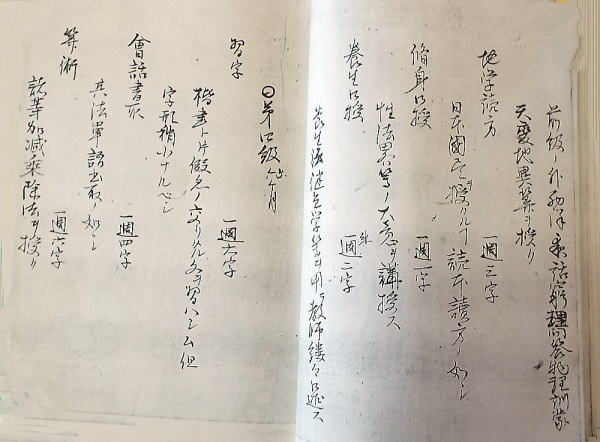 前級ノ外物理童話窮理問答物理訓蒙
天変地異等ヲ授ク
地学読方 一週三字
日本國尽ヲ授クル1読本讀方ノ如シ
脩身口授 一週一字
性法畧等ノ大意ヲ講授ス
養生口授 一週二字
養生法健全学等ヲ用ヒ教師縷々口述ス
○第四級六ケ月
習字 一週六字
楷書ト片假名ノ交リタル文ヲ習ハシム但
字形稍小ナルヘシ
會話書取 一週四字
其法單語書取ノ如シ
算術 一週六字
諸等加減乘除法ヲ授ク